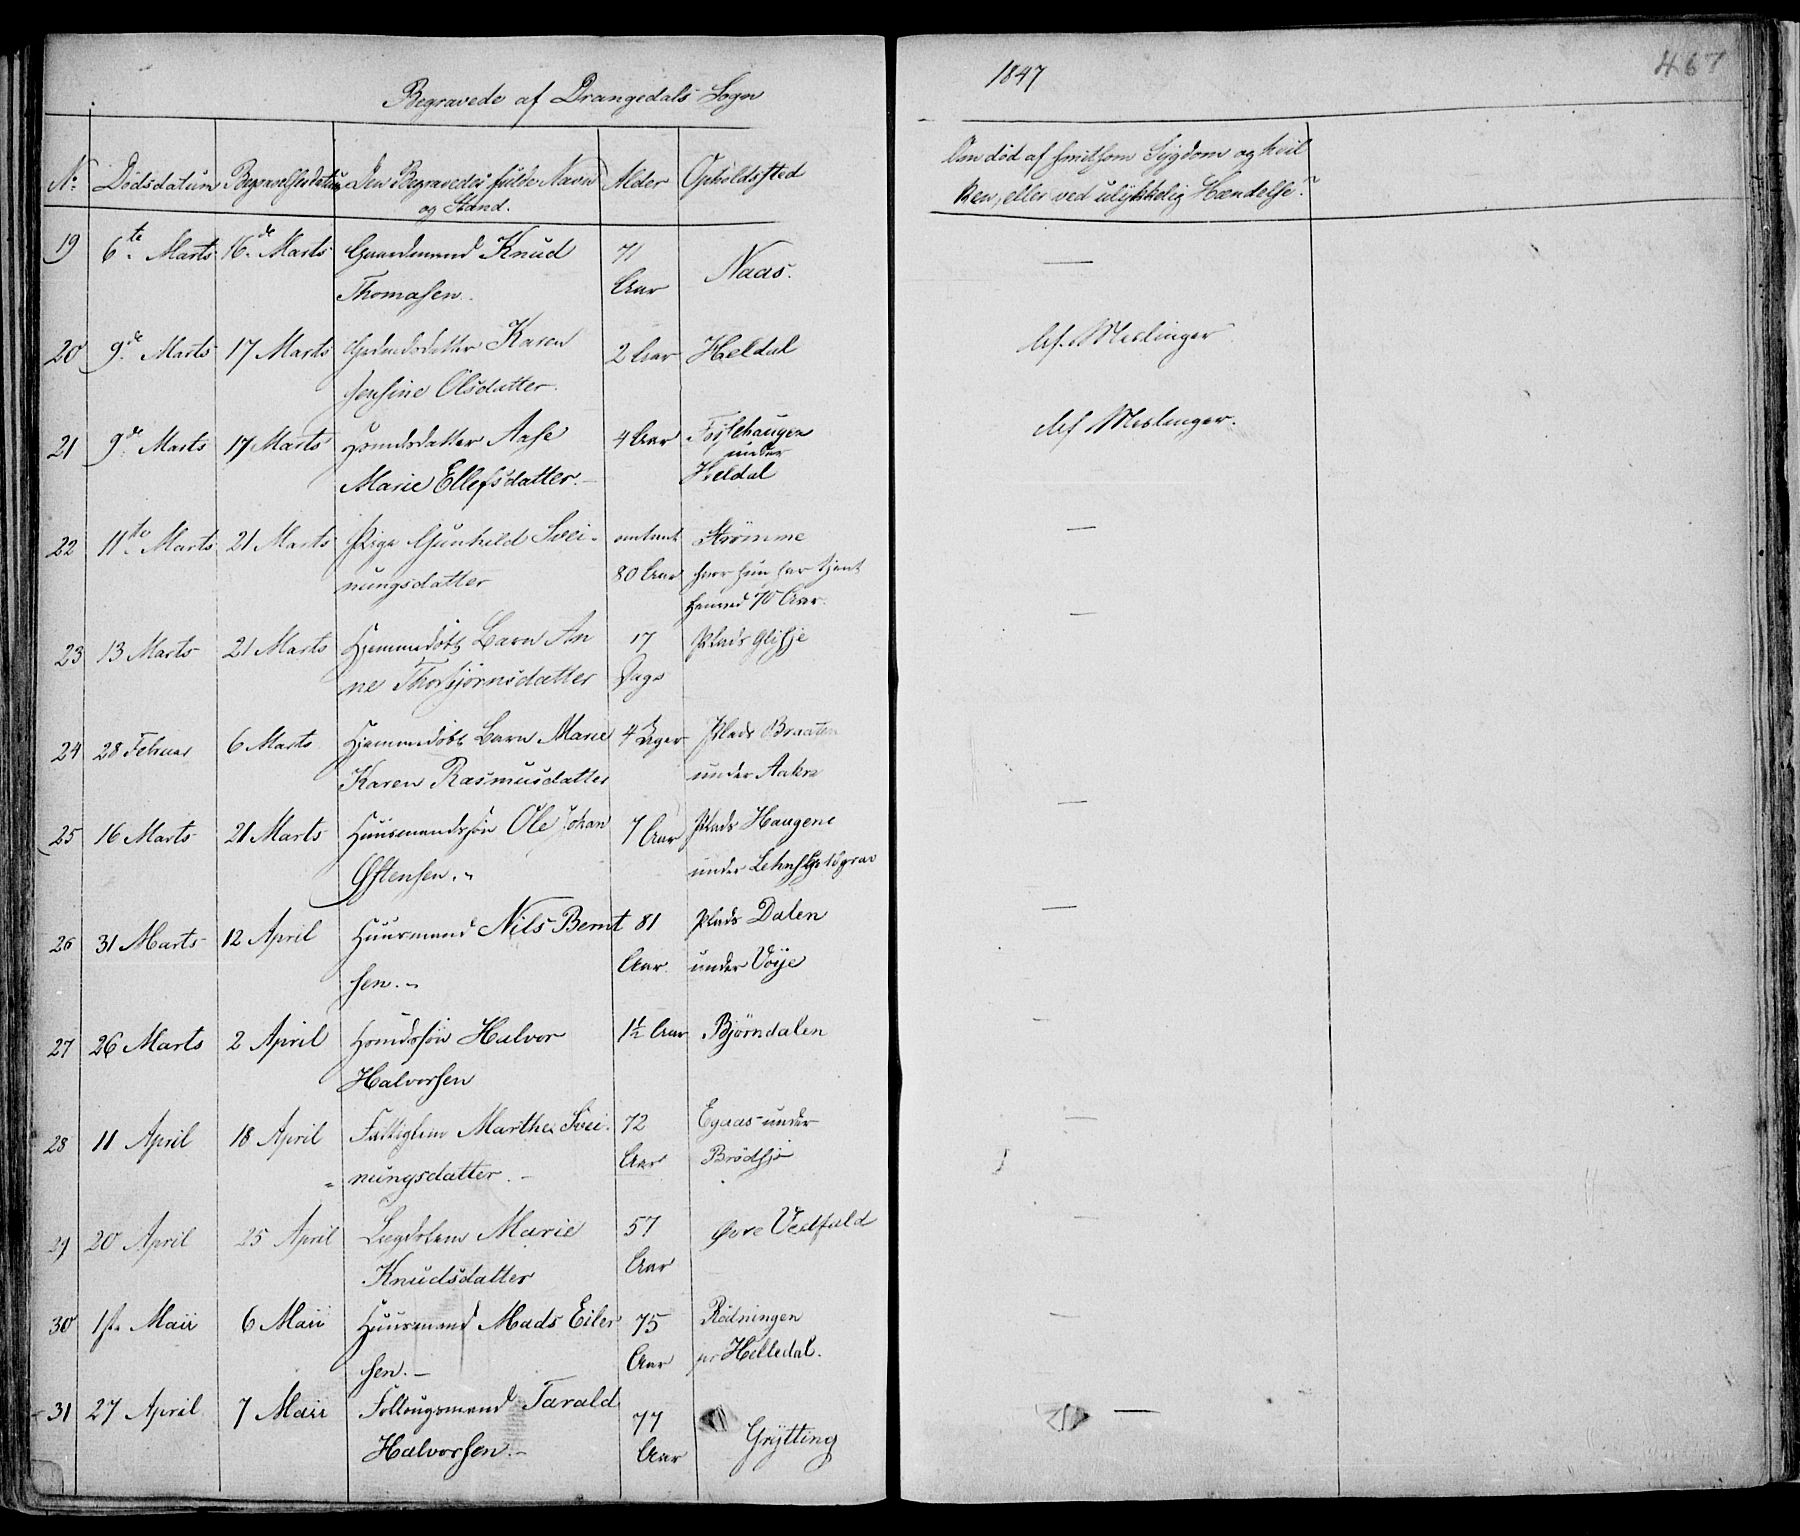 Begravede af Drangedals Sogn
1847
467
No Dødsdatum Begravelsesdatum Den Begravedes fulde Navn og Stand. Alder Opholdssted
Om død af smitsom Sygdom og hvil
ken, eller ved ulykkelig Hændelse?
19 6te Marts 16de Marts Gaardmand Knud 71
Thomasen. Aar Naas.
—
20 9de Marts 17 Marts Karen 2 Aar Heldal
Jensine Olsdatter.
Af Meslinger
21 9de Marts 17 Marts Aase 4 Aar
Marie Ellefsdatter. under
Heldal
Af Meslinger.
22 11te Marts 21 Marts Pige Gunhild Svei- omtrent Strømme
nungsdatter 80 Aar hvor hun har tjent
henved 70 Aar.
—
23 13 Marts 21 Marts Hjemmedøbt Barn An 17 Plads
ne Thorbjørnsdatter Dage
—
24 28 Februar 6 Marts Hjemmedøbt Barn Marie 4 Uger Plads Braaten
Karen Rasmusdatter under Aakre
25 16 Marts 21 Marts Huusmandssøn Ole Johan 7 Aar Plads Haugene
Østensen. under
—
26 31 Marts 12 April Huusmand Nils Bernt 81 Plads Dalen
sen. Aar. under Vöje
—
27 26 Marts 2 April Halvor 1½ Aar Bjørndalen
Halvorsen
—
28 11 April 18 April Fattiglem Marthe Svei- 72 Egaas under
nungsdatter. Aar Brødsjø
—
29 20 April 25 April Lægdslem Marie 57 Øvre
Knudsdatter Aar
—
30 1ste Maii 6 Maii Huusmand Mads Eiler 75 Rødningen
sen. Aar Helledal.
—
31 27 April 7 Maii Follougsmand Tarald 77
Halvorsen. Aar Grytting
—